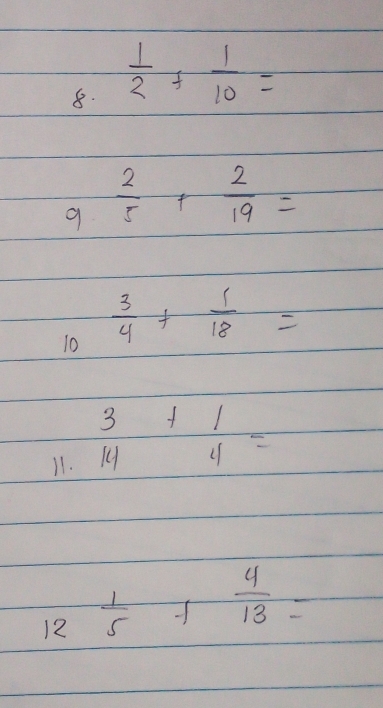 8. 1/2 + 1/10 =
9 2/5 + 2/19 =
10 3/4 + 1/18 =
11. 3/14 + 1/4 =
12 1/5 + 4/13 =